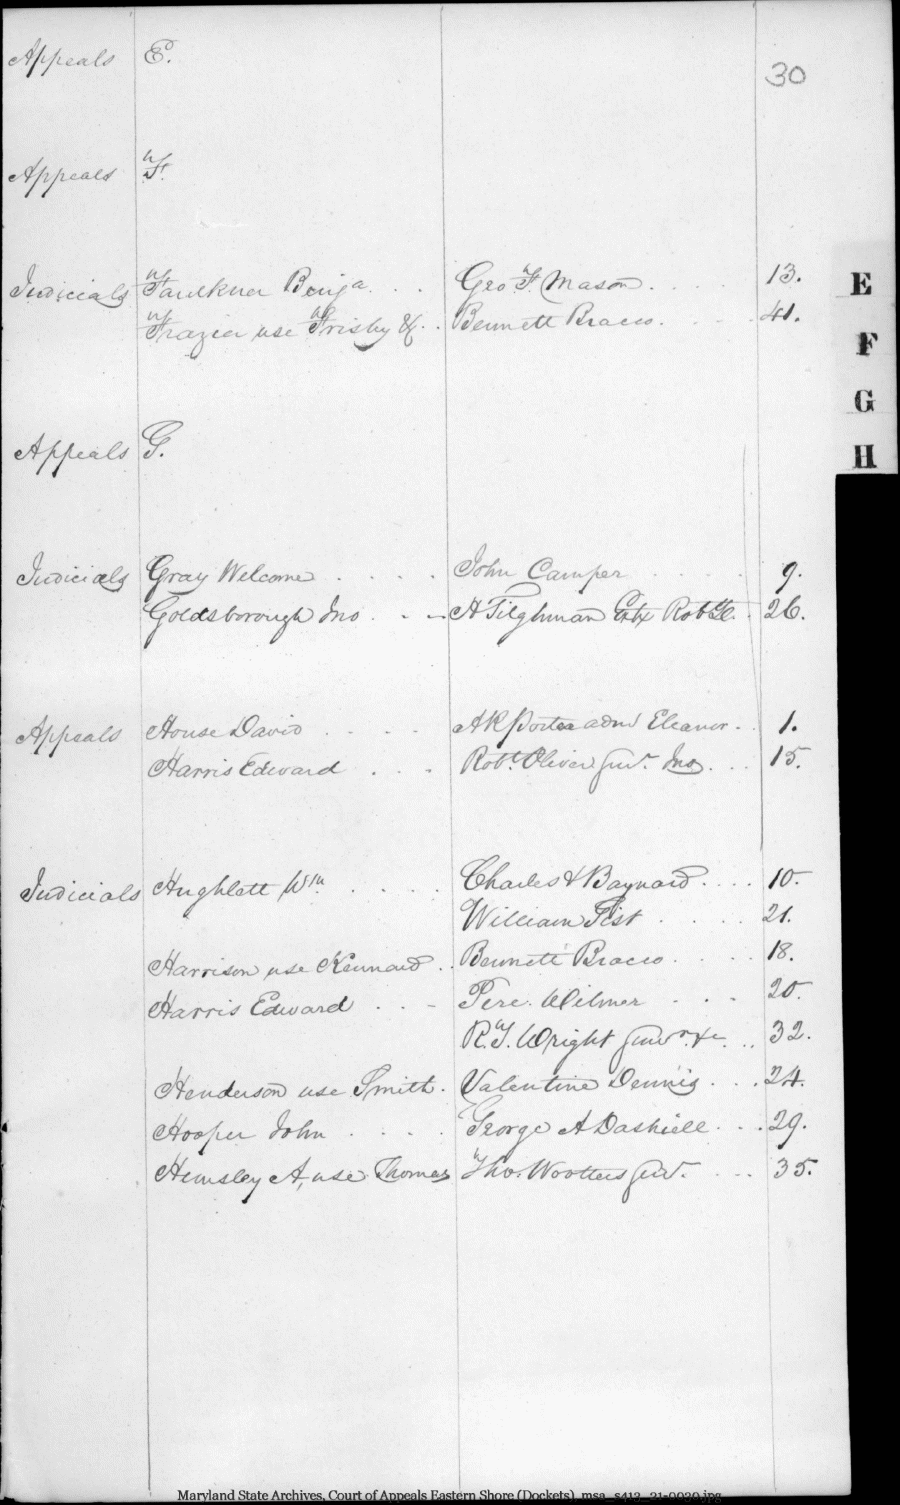 Appeals E.
30
Appeals F.
Judicials Faulkner Benja. . . Geo. F. Mason . . . . 13.
Frazier use Frisby &c. . Bennett Bracco. . . . 41.
E
F
G
H
Appeals G.
Judicials Gray Welcome . . . . John Camper . . . . . 9.
Goldsborough Jno . . . A Tilghman Extx Robt . 26.
Appeals House David . . . . A R Porter admr Eleanor . . 1.
Harris Edward . . . Robt. Oliver survr. Jno . . . 15.
Judicials Hughlett Wm . . . . Charles & Baynard . . . . 10.
William Fist . . . . . 21.
Harrison use Kennard . . Bennett Bracco . . . . . 18.
Harris Edward . . . Pere. Wilmer . . . 20.
R. T. Wright survr. &c. . . 32.
Henderson use Smith . Valentine Dennis . . . 24.
Hooper John . . . . George A Dashiell . . . 29.
Hemsley A, use Thomas Tho. Wootters survr. . . . 35.
Maryland State Archives, Court of Appeals Eastern Shore (Dockets), msa_s412_21-0030.jpg